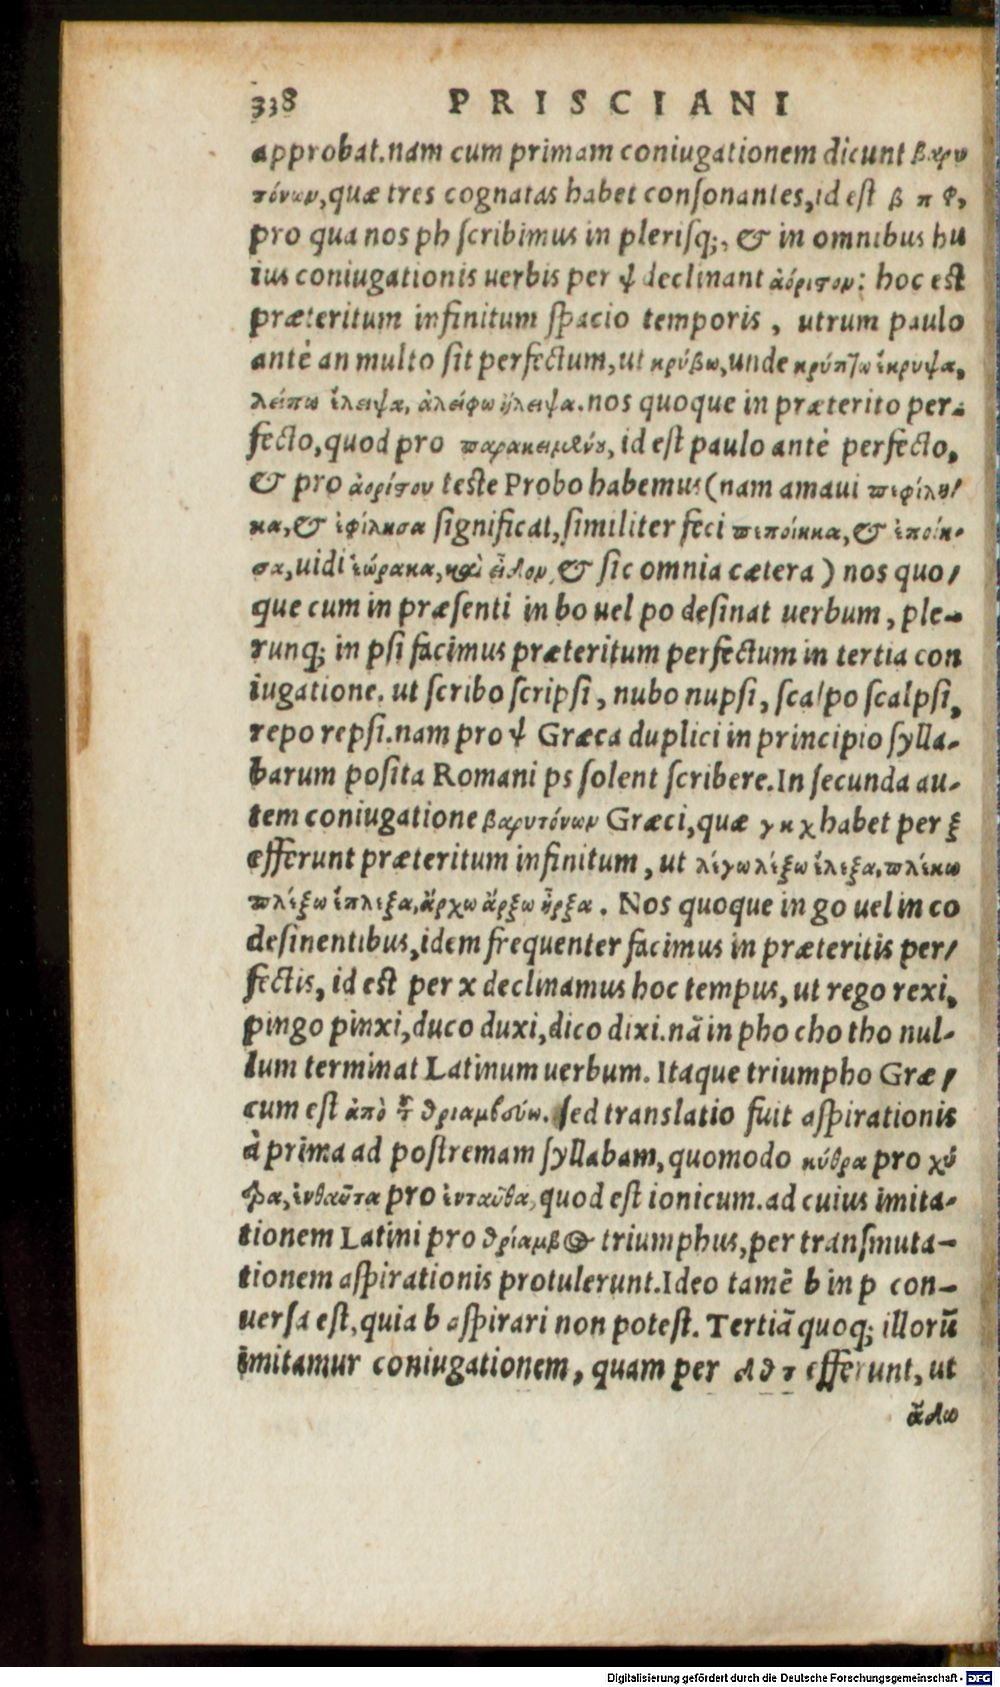 338 PRISCIANI
approbat.nam cum primam coniugationem dicunt βαρυ
τόνων,quæ tres cognatas habet consonantes,id est β π φ,
pro qua nos ph scribimus in plerisq;, & in omnibus hu
ius coniugationis uerbis per ψ declinant ἀόριστον: hoc est
præteritum infinitum spacio temporis, utrum paulo
antè an multo sit perfectum,ut κρύβω,unde κρύπτω ἔκρυψα,
λείπω ἔλειψα, ἀλείφω ἤλειψα.nos quoque in præterito per-
fecto,quod pro παρακειμένου, id est paulo antè perfecto,
& pro ἀορίστου teste Probo habemus(nam amaui πεφίλη/
κα,& ἐφίλησα significat,similiter feci πεποίηκα,& ἐποίη-
σα,uidi ἑώρακα,καὶ εἶδον,& sic omnia cætera) nos quo/
que cum in præsenti in bo uel po desinat uerbum, ple-
runq; in psi facimus præteritum perfectum in tertia con
iugatione. ut scribo scripsi, nubo nupsi, scalpo scalpsi,
repo repsi.nam pro ψ Græca duplici in principio sylla-
barum posita Romani ps solent scribere.In secunda au-
tem coniugatione βαρυτόνων Græci,quæ γ κ χ habet per ξ
efferunt præteritum infinitum, ut λέγω λέξω ἔλεξα,πλέκω
πλέξω ἔπλεξα,ἄρχω ἄρξω ἦρξα. Nos quoque in go uel in co
desinentibus,idem frequenter facimus in præteritis per/
fectis, id est per x declinamus hoc tempus, ut rego rexi,
pingo pinxi,duco duxi,dico dixi.nā in pho cho tho nul-
lum terminat Latinum uerbum. Itaque triumpho Græ/
cum est ἀπὸ τ θριαμβεύω. sed translatio fuit aspirationis
à prima ad postremam syllabam,quomodo κύθρα pro χύ
τρα,ἐνθαῦτα pro ἐνταῦθα,quod est ionicum.ad cuius imita-
tionem Latini pro θρίαμβος triumphus,per transmuta-
tionem aspirationis protulerunt.Ideo tamē b in p con-
uersa est,quia b aspirari non potest. Tertiā quoq; illorū
imitamur coniugationem, quam per δ θ τ efferunt, ut
ἄδω
Digitalisierung gefördert durch die Deutsche Forschungsgemeinschaft - DFG